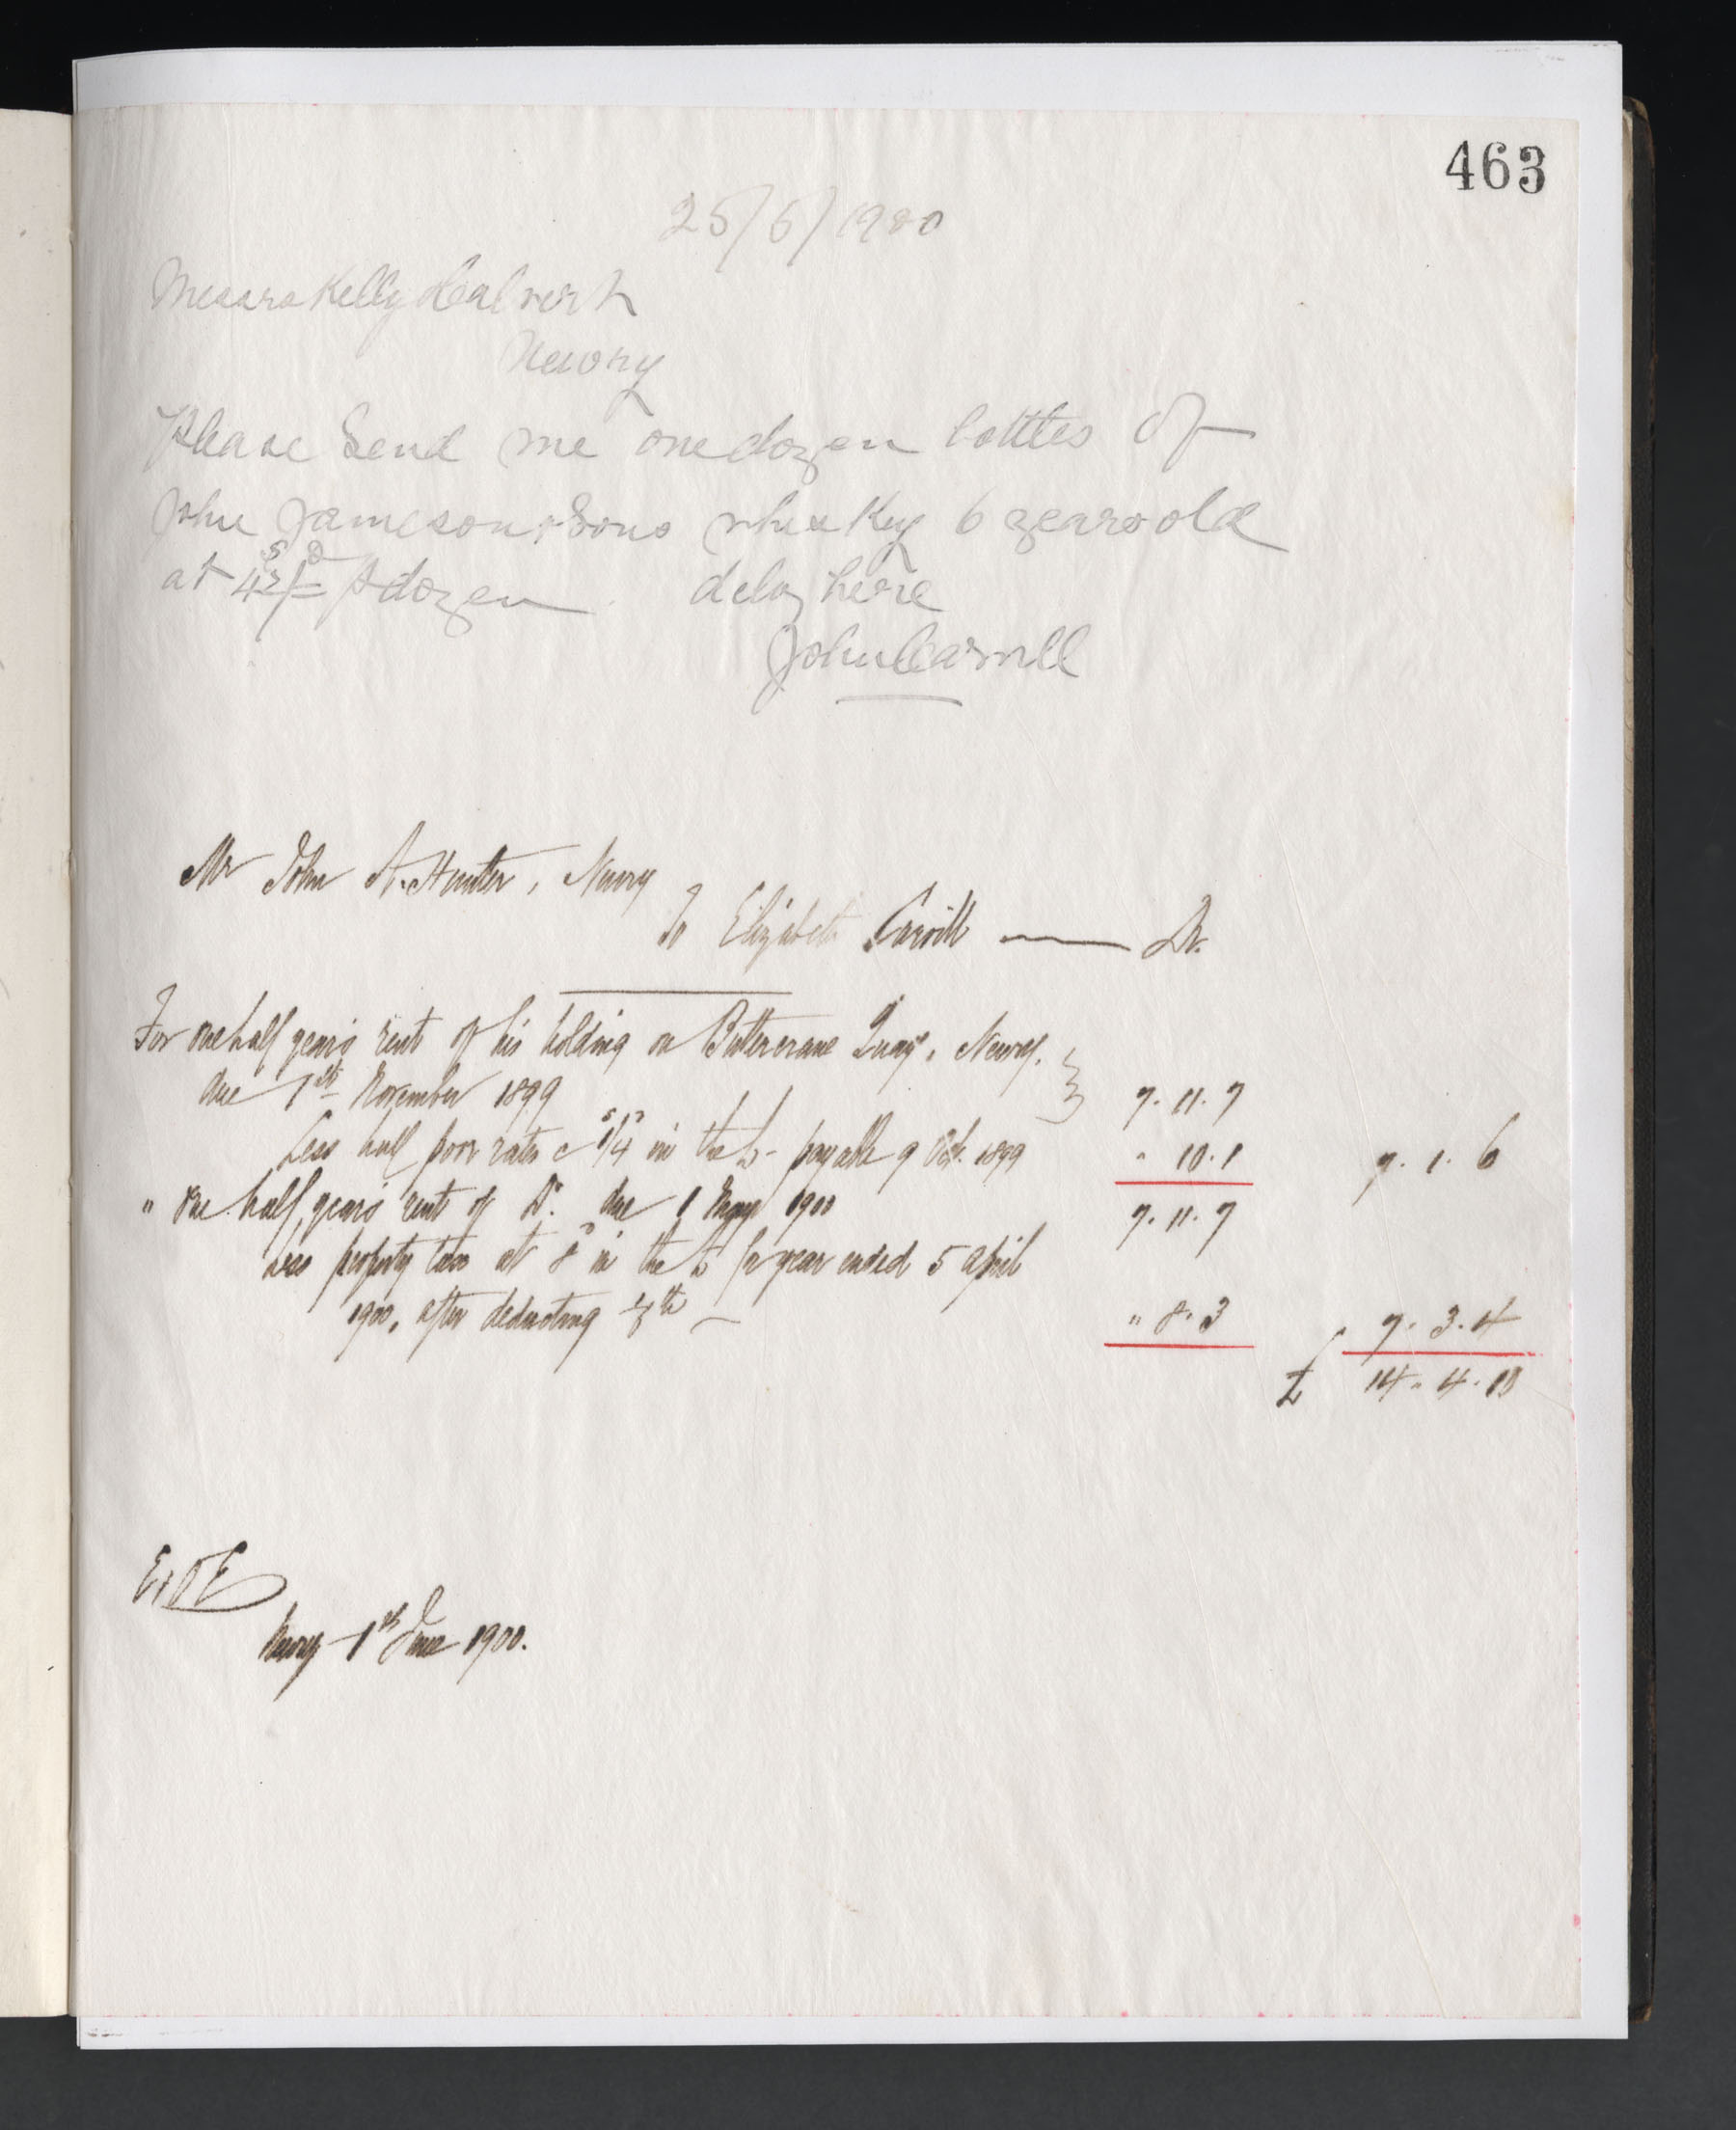 463
25/6/1900
Messrs Kelly & Calvert
Newry
Please Send me one dozen bottles of
John Jameson & Sons whisky 6 years old
at 42/= P dozen. dely here
John Carvill
Mr John A. Hunter, Newry
To Elizabeth Carvill — Dr.
For one half year's rent of his holding on Buttercrane Quay, Newry.
due 1st November 1899 7. 11. 7
Less half poor rates @ 1/4 in the £ payable 9 Oct. 1899 " 10. 1 7. 1. 6
" One half year's rent of Do. due 1 May 1900 7. 11. 7
Less property tax at 8d in the £ for year ended 5 April
1900, after deducting 1/8th — " 8. 3 7. 3. 4
£ 14. 4. 10
E & O E
Newry 1st June 1900.